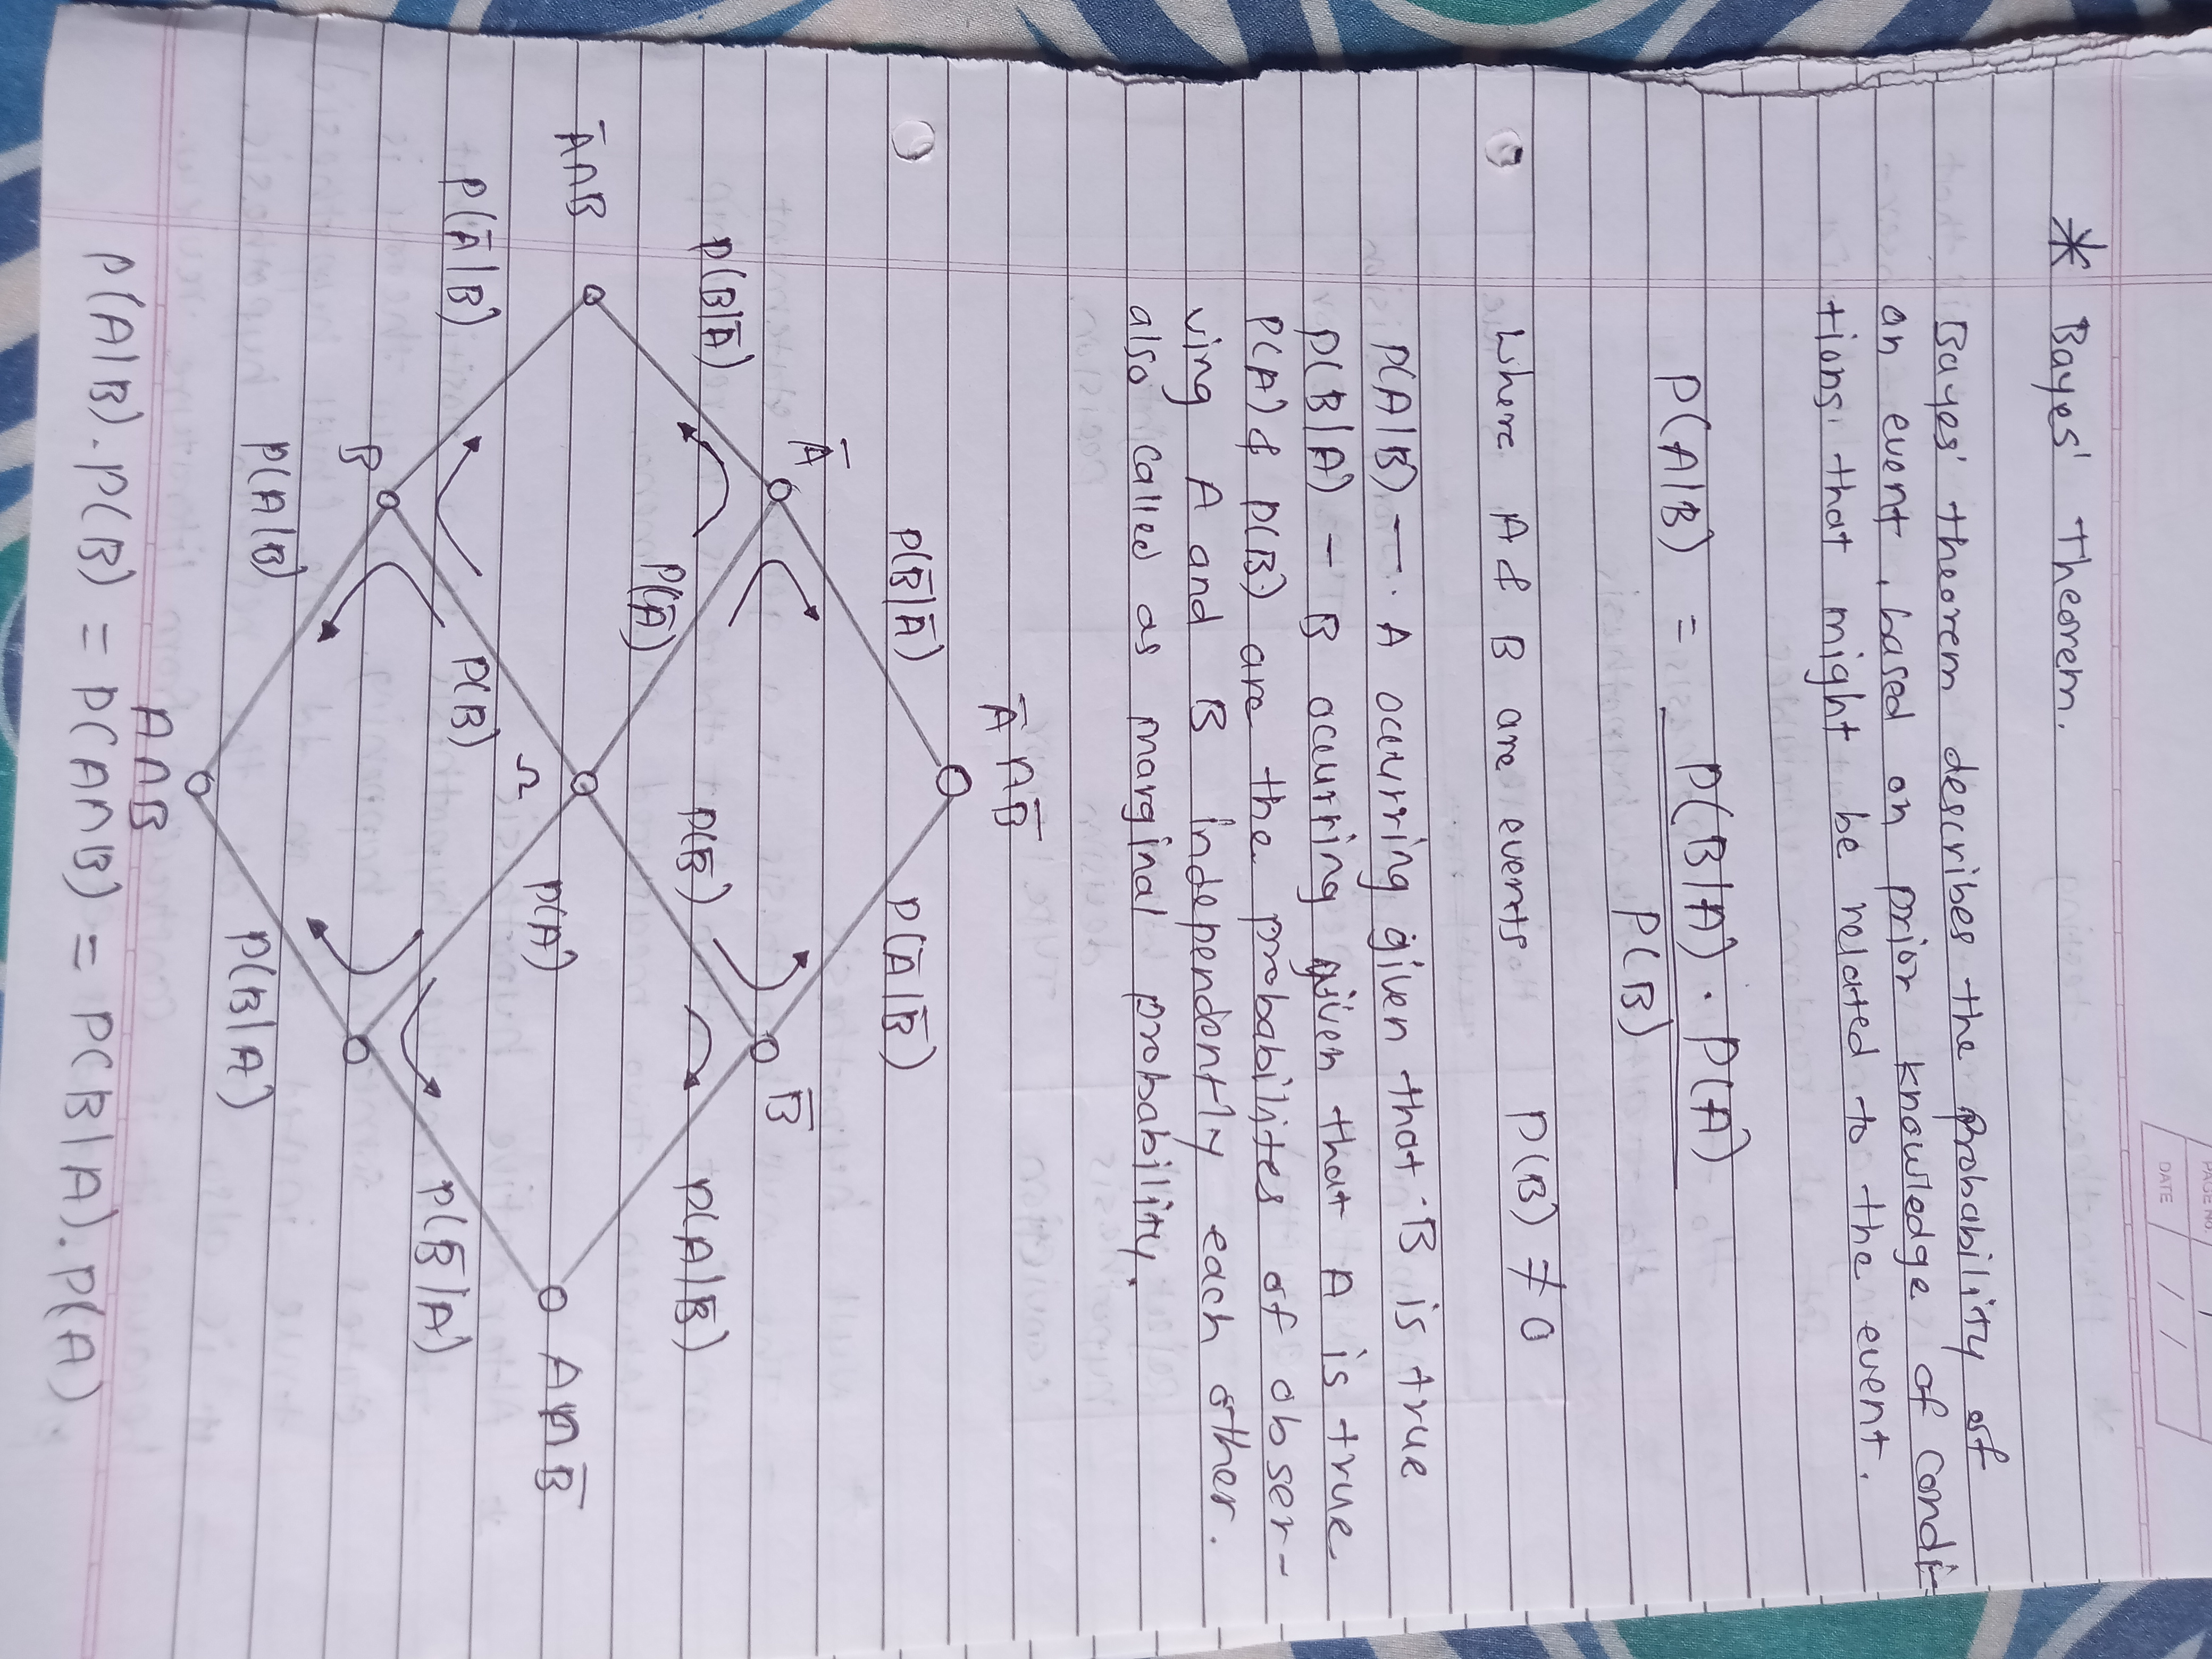 PAGE NO.
DATE / /
* Bayes' Theorem.
Bayes' theorem describes the Probability of
an event, based on prior knowledge of condi-
tions. that might be related to the event.
P(A|B) = P(B|A) · P(A)
P(B)
Where A & B are events P(B) ≠ 0
P(A|B) — A occurring given that B is true
P(B|A) — B occurring given that A is true
P(A) & P(B) are the probabilites of obser-
ving A and B independently each other.
also called as marginal probability.
A̅ ∩ B̅
P(B̅|A̅) P(A̅|B̅)
A̅ B̅
P(B|A̅) P(A̅) P(B̅) P(A|B̅)
A̅∩B Ω P(A) A∩B̅
P(A̅|B) P(B) P(B̅|A)
B
P(A|B) P(B|A)
A∩B
P(A|B).P(B) = P(A∩B) = P(B|A).P(A).